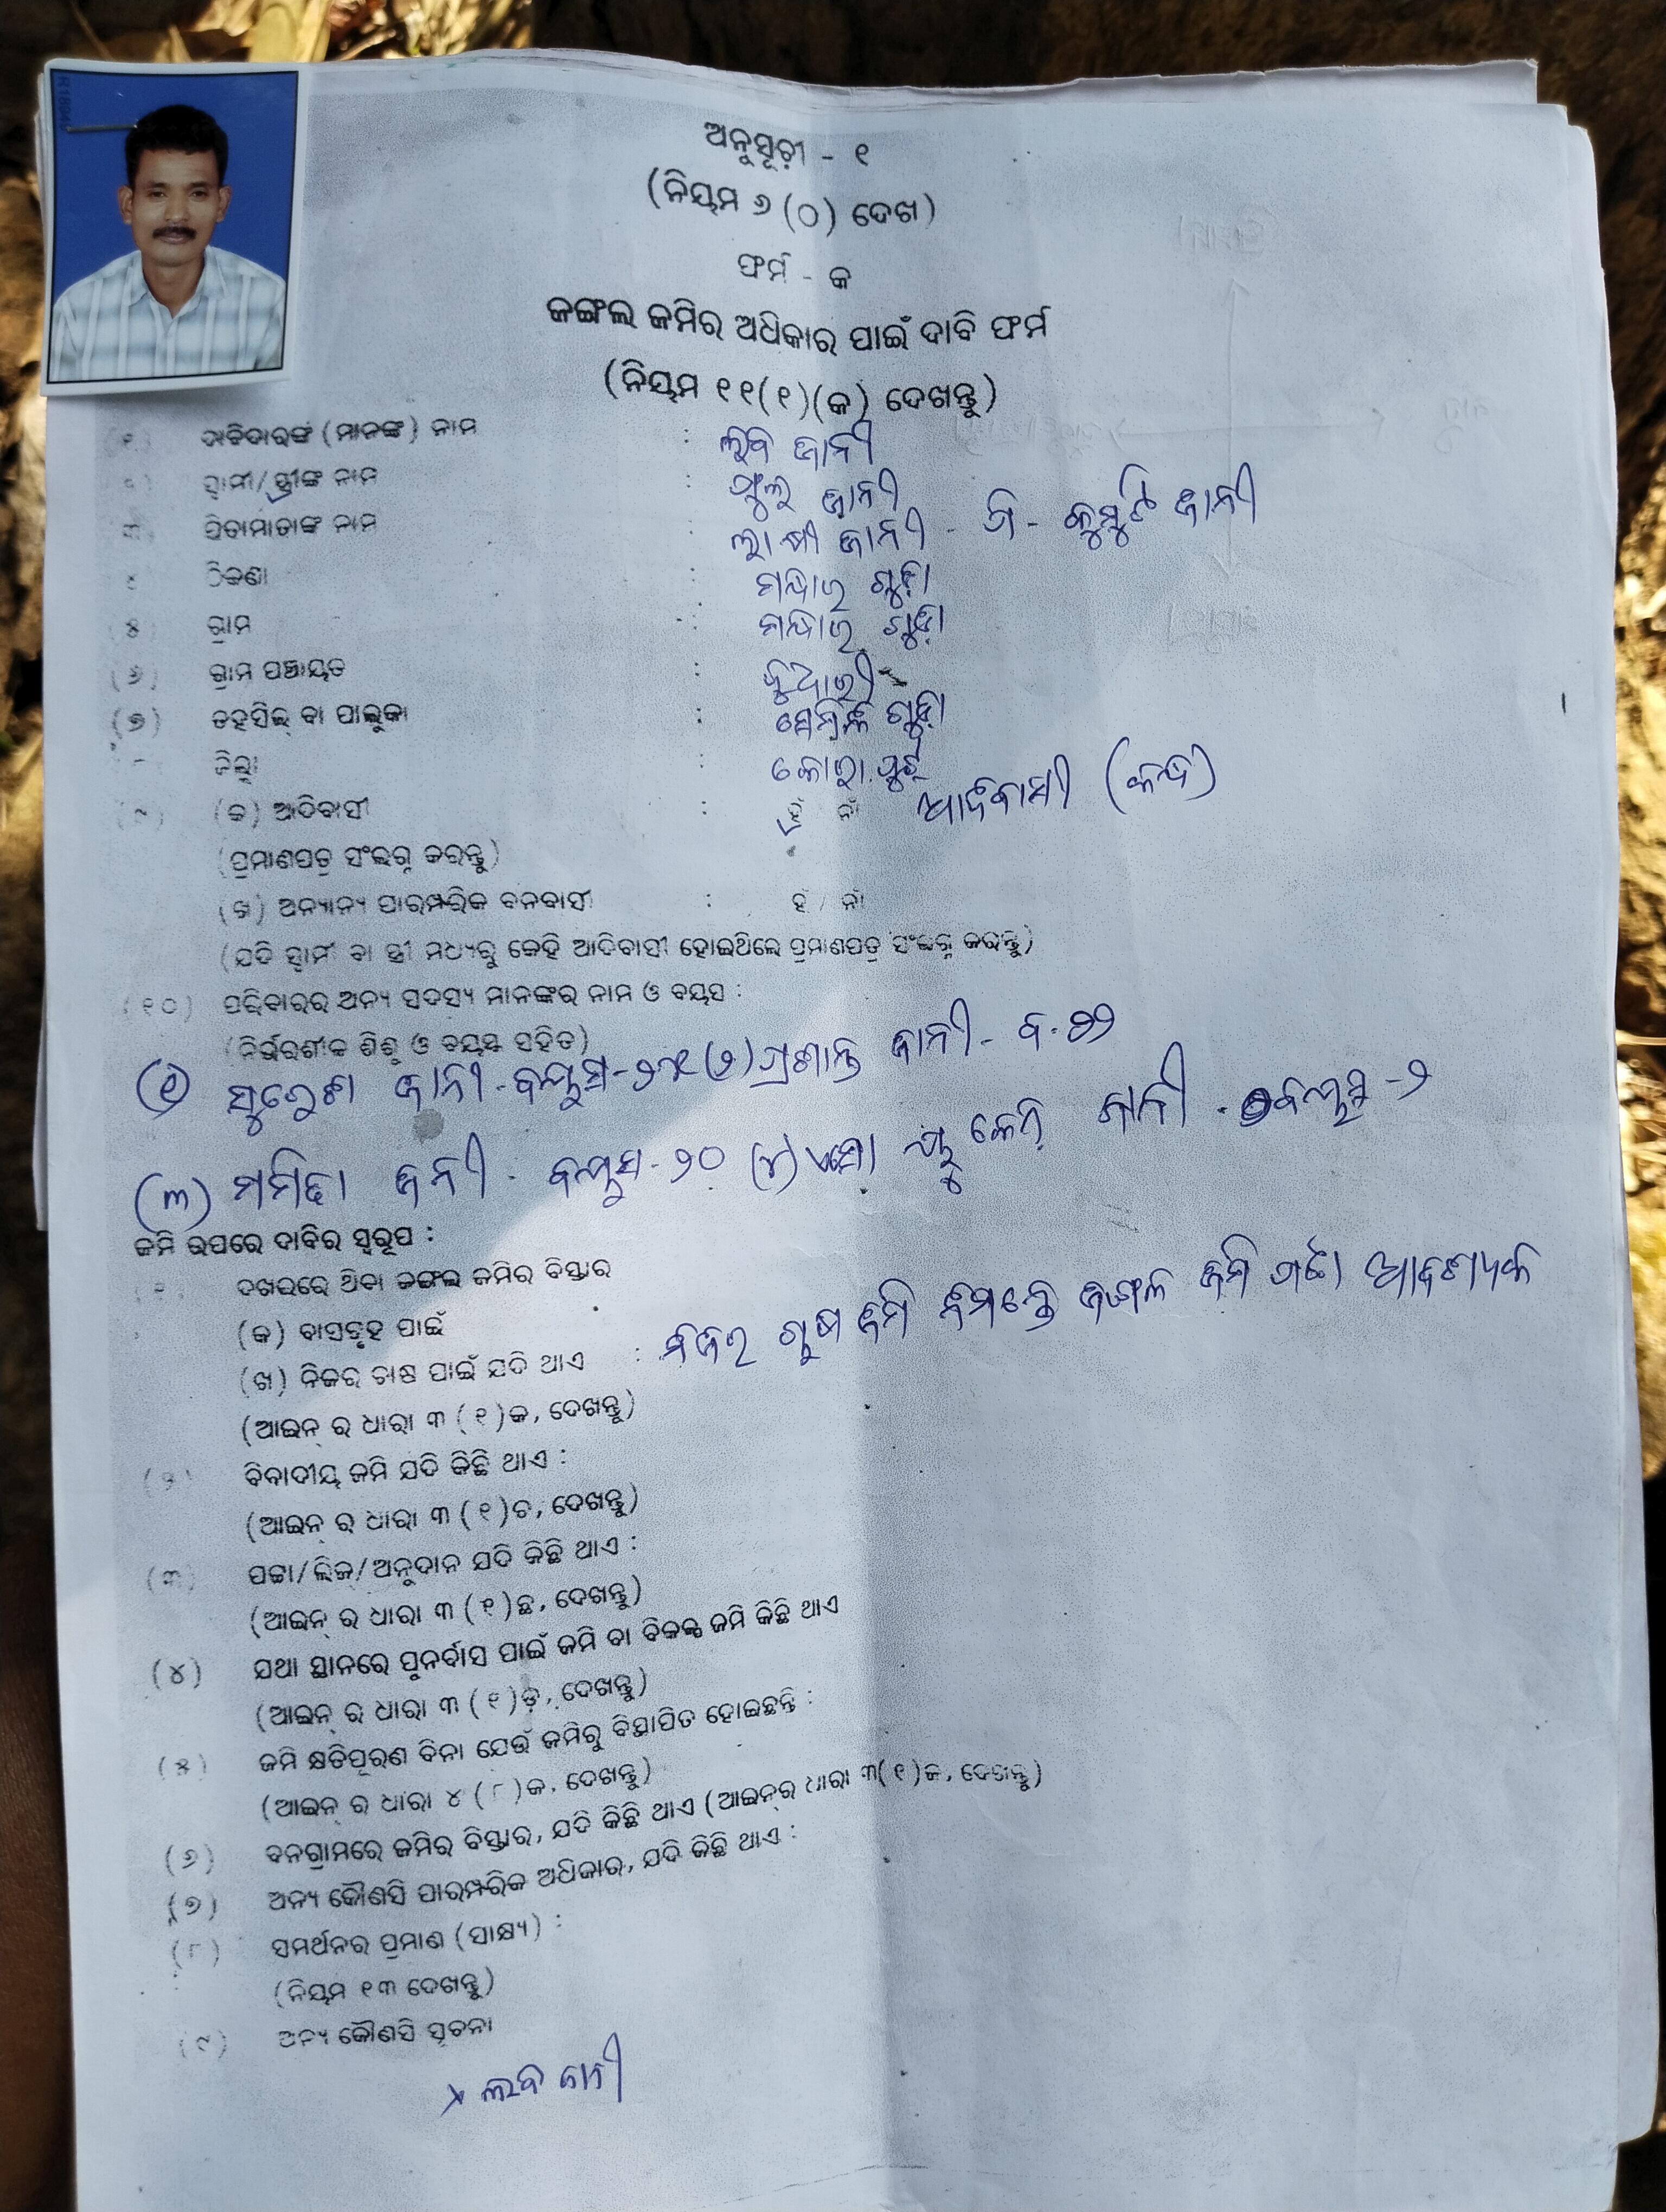 ଅନୁସୂଚୀ - ୧
(ନିୟମ ୬ (୦) ଦେଖ)
ଫର୍ମ - କ
ଜଙ୍ଗଲ ଜମିର ଅଧିକାର ପାଇଁ ଦାବି ଫର୍ମ
(ନିୟମ ୧୧(୧)(କ) ଦେଖନ୍ତୁ)
(୧) ଦାବିଦାରଙ୍କ (ମାନଙ୍କ) ନାମ : ଲବ ଜାନୀ
ସ୍ୱାମୀ/ସ୍ତ୍ରୀଙ୍କ ନାମ : ଫୁଲ ଜାନୀ
୩ ପିତାମାତାଙ୍କ ନାମ : ଜାନୀ - ଜାନୀ
୪ ଠିକଣା : ଗୁଡ଼ା
(୫) ଗ୍ରାମ : ଗୁଡ଼ା
(୬) ଗ୍ରାମ ପଞ୍ଚାୟତ :
(୭) ତହସିଲ୍ ବା ତାଲୁକା : ଗୁଡ଼ା
ଜିଲ୍ଲା : କୋରାପୁଟ୍
(୯) (କ) ଆଦିବାସୀ : ହଁ ନାଁ ଆଦିବାସୀ (କନ୍ଧ)
(ପ୍ରମାଣପତ୍ର ସଂଲଗ୍ନ କରନ୍ତୁ)
(ଖ) ଅନ୍ୟାନ୍ୟ ପାରମ୍ପରିକ ବନବାସୀ : ହଁ / ନାଁ
(ଯଦି ସ୍ୱାମୀ ବା ସ୍ତ୍ରୀ ମଧ୍ୟରୁ କେହି ଆଦିବାସୀ ହୋଇଥିଲେ ପ୍ରମାଣପତ୍ର ସଂଲଗ୍ନ କରନ୍ତୁ)
(୧୦) ପରିବାରର ଅନ୍ୟ ସଦସ୍ୟ ମାନଙ୍କର ନାମ ଓ ବୟସ :
(ନିର୍ଭରଶୀଳ ଶିଶୁ ଓ ବୟସ୍କ ସହିତ)
(୧) ଜାନୀ - ବୟସ - (୨) ପ୍ରଶାନ୍ତ ଜାନୀ - ବ. ୨୨
(୩) ମମିତା ଜାନୀ - ବୟସ - ୨୦ (୪) ଜାନୀ - ବୟସ - ୨
ଜମି ଉପରେ ଦାବିର ସ୍ୱରୂପ :
ଦଖଲରେ ଥିବା ଜଙ୍ଗଲ ଜମିର ବିସ୍ତାର
(କ) ବାସଗୃହ ପାଇଁ
(ଖ) ନିଜର ଚାଷ ପାଇଁ ଯଦି ଥାଏ : ଚାଷ ଜମି ନିମନ୍ତେ ଜଙ୍ଗଲ ଜମି ପଟ୍ଟା ଆବଶ୍ୟକ
(ଆଇନ୍ ର ଧାରା ୩ (୧)କ, ଦେଖନ୍ତୁ)
(୨) ବିବାଦୀୟ ଜମି ଯଦି କିଛି ଥାଏ :
(ଆଇନ୍ ର ଧାରା ୩ (୧)ଚ, ଦେଖନ୍ତୁ)
(୩) ପଟ୍ଟା/ଲିଜ୍/ଅନୁଦାନ ଯଦି କିଛି ଥାଏ :
(ଆଇନ୍ ର ଧାରା ୩ (୧)ଛ, ଦେଖନ୍ତୁ)
(୪) ଯଥା ସ୍ଥାନରେ ପୁନର୍ବାସ ପାଇଁ ଜମି ବା ବିକଳ୍ପ ଜମି କିଛି ଥାଏ
(ଆଇନ୍ ର ଧାରା ୩ (୧)ଡ, ଦେଖନ୍ତୁ)
(୫) ଜମି କ୍ଷତିପୂରଣ ବିନା ଯେଉଁ ଜମିରୁ ବିସ୍ଥାପିତ ହୋଇଛନ୍ତି :
(ଆଇନ୍ ର ଧାରା ୪ (୮)କ, ଦେଖନ୍ତୁ)
(୬) ବନଗ୍ରାମରେ ଜମିର ବିସ୍ତାର, ଯଦି କିଛି ଥାଏ (ଆଇନ୍‌ର ଧାରା ୩(୧)ଜ, ଦେଖନ୍ତୁ)
(୭) ଅନ୍ୟ କୌଣସି ପାରମ୍ପରିକ ଅଧିକାର, ଯଦି କିଛି ଥାଏ :
(୮) ସମର୍ଥନର ପ୍ରମାଣ (ସାକ୍ଷ୍ୟ) :
(ନିୟମ ୧୩ ଦେଖନ୍ତୁ)
(୯) ଅନ୍ୟ କୌଣସି ସୂଚନା
x ଲବ ଜାନୀ